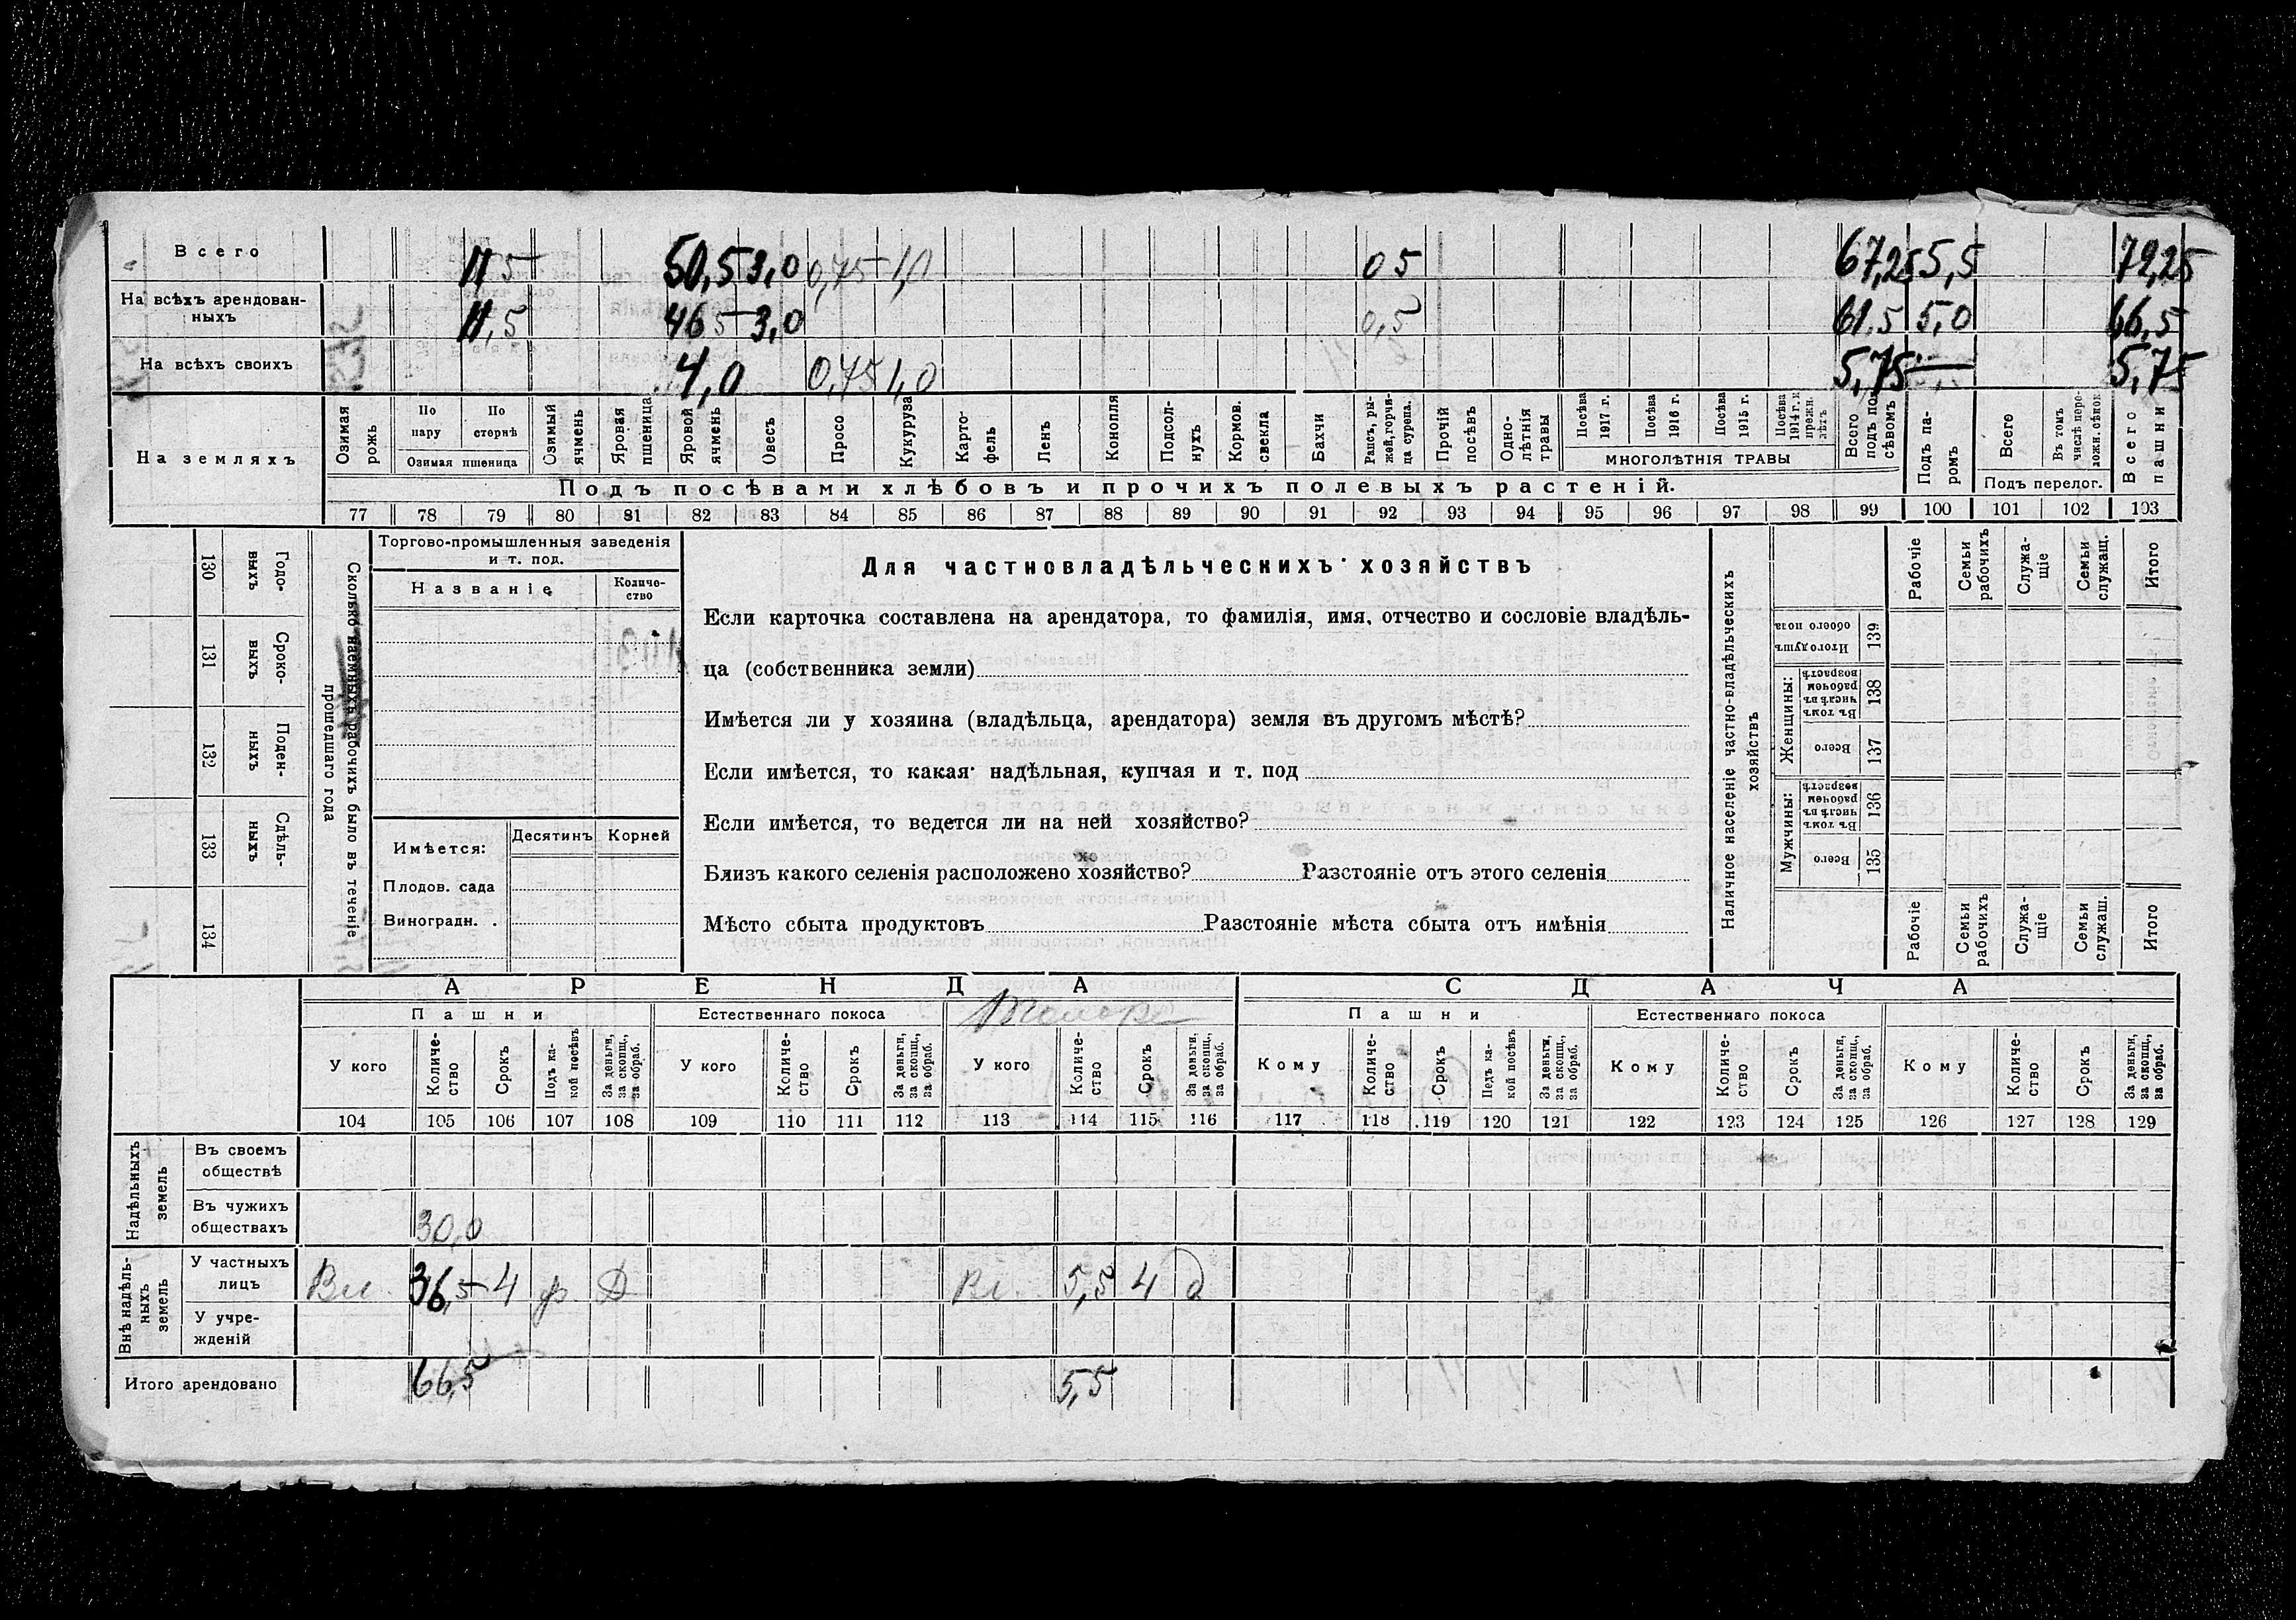 Всего 11 5 50,5 3,0 0,75 1,0 0 5 67,25 5,5 72,25
На всѣхъ арендован-
ныхъ 11,5 46 5 3,0 0,5 61,5 5,0 66,5
На всѣхъ своихъ 4,0 0,75 1,0 5,75 — 5,75
На земляхъ
Озимая рожь
По пару
По стернѣ
Озимая пшеница
Озимый ячмень
Яровая пшеница
Яровой ячмень
Овесъ
Просо
Кукуруза
Карто-
фель
Ленъ
Конопля
Подсол-
нухъ
Кормов. свекла
Бахчи
Рапсъ, ры-
жей, горчи-
ца сурепа.
Прочій посѣвъ
Одно-
лѣтнія травы
Посѣва 1917 г.
Посѣва 1916 г.
Посѣва 1915 г.
Посѣва 1914 г. и прежн. лѣтъ
МНОГОЛѢТНІЯ ТРАВЫ
Всего подъ по-
сѣвомъ
Подъ па-
ромъ
Всего
Въ томъ числѣ пере-
ложн. сѣнок.
Подъ перелог.
Всего пашни
Подъ посѣвами хлѣбовъ и прочихъ полевыхъ растеній.
77 78 79 80 81 82 83 84 85 86 87 88 89 90 91 92 93 94 95 96 97 98 99 100 101 102 103
130 Годо-
выхъ
131 Сроко-
выхъ
132 Поден-
ныхъ
133 Сдѣль-
ныхъ
134
Сколько наемныхъ рабочихъ было въ теченіе
прошедшаго года
Торгово-промышленныя заведенія
и т. под.
Названіе
Количе-
ство
Имѣется:
Десятинъ Корней
Плодов. сада
Виноградн. .
Для частновладѣльческихъ хозяйствъ
Если карточка составлена на арендатора, то фамилія, имя, отчество и сословіе владѣль-
ца (собственника земли)
Имѣется ли у хозяина (владѣльца, арендатора) земля въ другомъ мѣстѣ?
Если имѣется, то какая надѣльная, купчая и т. под
Если имѣется, то ведется ли на ней хозяйство?
Близъ какого селенія расположено хозяйство? Разстояніе отъ этого селенія
Мѣсто сбыта продуктовъ Разстояніе мѣста сбыта отъ имѣнія
Наличное населеніе частно-владѣльческихъ
хозяйствъ
Рабочіе
Семьи рабочихъ
Служа-
щіе
Семьи служащ.
Итого
Итого душъ обоего пола 139
Женщины:
Въ томъ числѣ въ рабочемъ возрастѣ 138
Всего 137
Мужчины:
Въ томъ числѣ въ рабочемъ возрастѣ 136
Всего 135
Рабочіе
Семьи рабочихъ
Служа-
щіе
Семьи служаш.
Итого
АРЕНДА СДАЧА
Пашни Естественнаго покоса Пашни Естественнаго покоса
У кого
Количе-
ство
Срокъ
Подъ ка-
кой посѣвъ
За деньги, за скопщ., за обраб.
У кого
Количе-
ство
Срокъ
За деньги, за скопщ., за обраб.
У кого
Количе-
ство
Срокъ
За деньги, за скопщ., за обраб.
Кому
Количе-
ство
Срокъ
Подъ ка-
кой посѣвъ
За деньги, за скопщ., за обраб.
Кому
Количе-
ство
Срокъ
За деньги, за скопщ., за обраб.
Кому
Количе-
ство
Срокъ
За деньги, за скопщ., за обраб.
104 105 106 107 108 109 110 111 112 113 114 115 116 117 118 119 120 121 122 123 124 125 126 127 128 129
Надѣльныхъ земель
Въ своемъ
обществѣ
Въ чужихъ
обществахъ 30,0
Внѣ надѣль-
ныхъ земель
У частныхъ
лицъ Вл. 36,5 4 р. Д Вл. 5,5 4 д
У учре-
жденій
Итого арендовано 66,5 5,5